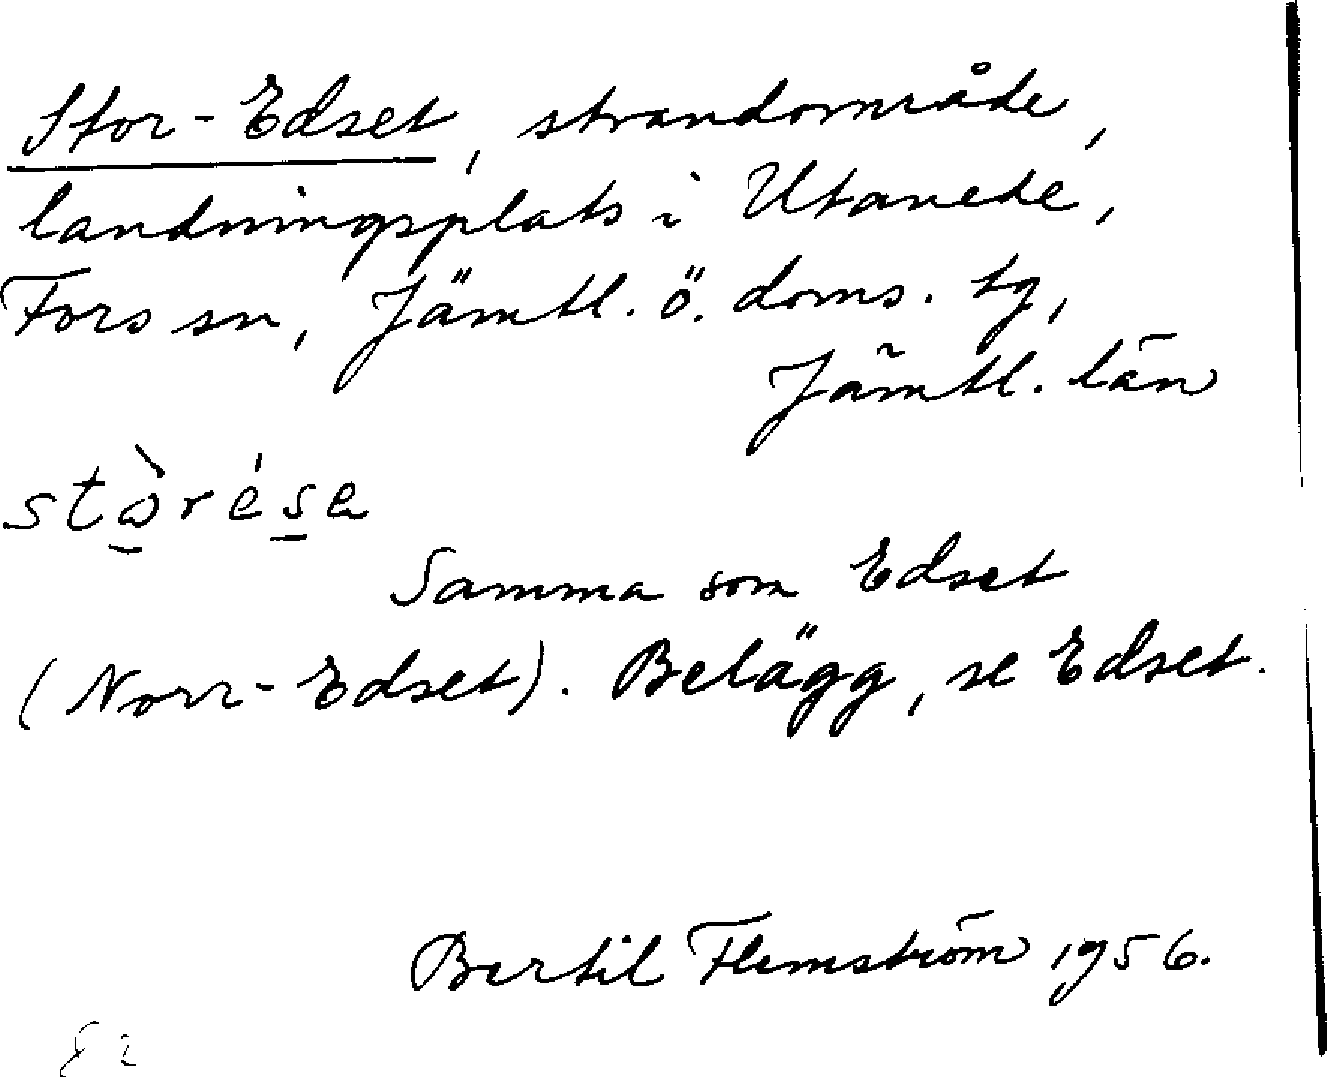 Stor-Edset, strandområde,
landningsplats i Utanede,
Fors sn, Jämtl. ö. doms. tg,
Jämtl. län
Samma som Edset
(Norr-Edset). Belägg, se Edset.
Bertil Flemström 1956.